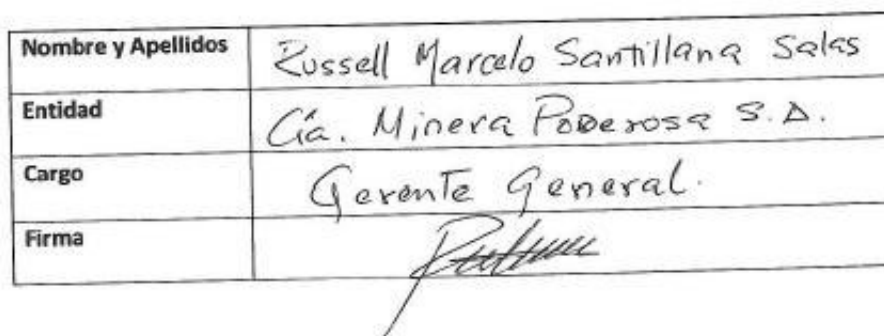 Nombre y Apellidos Russell Marcelo Santillana Salas
Entidad Cía. Minera Poderosa S.A.
Cargo Gerente General.
Firma